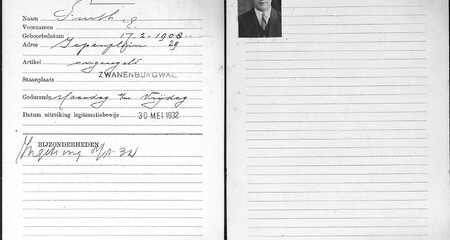 Naam Smith
Voornamen E.
Geboortedatum 17.2-1908
Adres Iepenplein 29
Artikel ongeregeld
Staanplaats ZWANENBURGWAL
Gedurende Maandag t/m Vrijdag
Datum uitreiking legitimatiebewijs 30 MEI 1932
BIJZONDERHEDEN